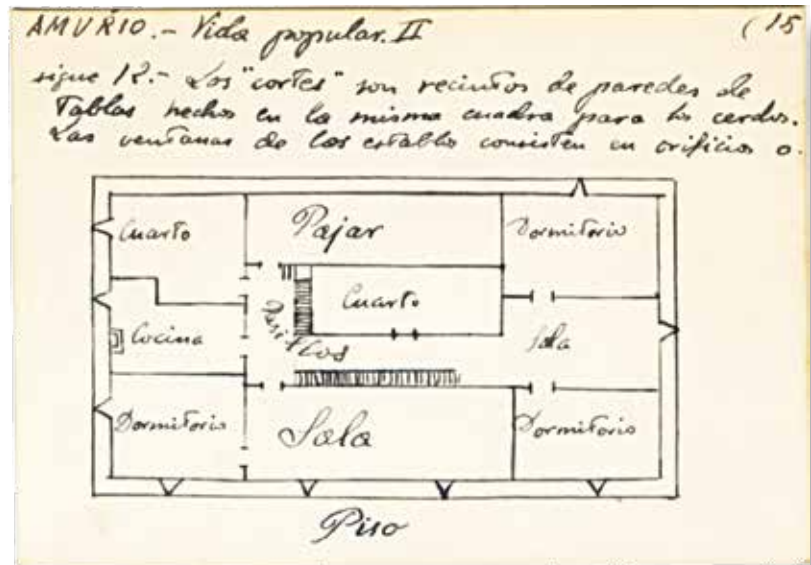 AMURIO.- Vida popular. II (15
sigue 12.- Los "cortes" son recintos de paredes de
Tablas hechos en la misma cuadra para los cerdos.
Las ventanas de los establo consisten en orificios o.
Cuarto
Pajar
Dormitorio
Cuarto
Pasillos
Cocina
Sala
Dormitorio
Sala
Dormitorio
Piso